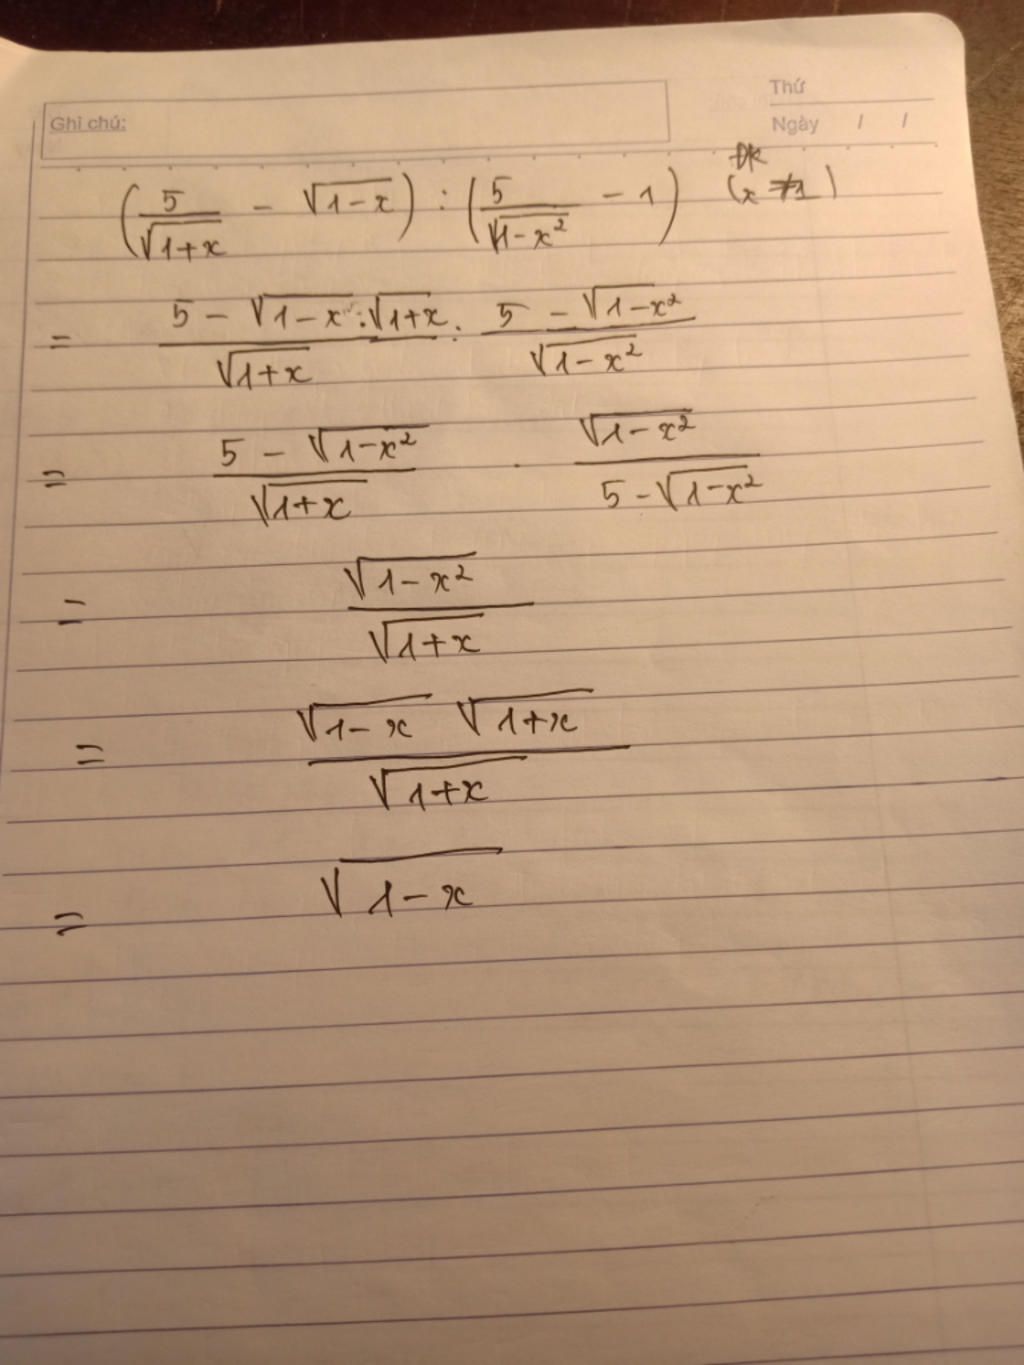 Thứ
Ghi chú:
Ngày / /
ĐK
(5/√(1+x) - √(1-x)) : (5/√(1-x²) - 1) (x ≠ 1)
= (5 - √(1-x) . √(1+x))/√(1+x) : (5 - √(1-x²))/√(1-x²)
= (5 - √(1-x²))/√(1+x) . √(1-x²)/(5 - √(1-x²))
= √(1-x²)/√(1+x)
= √(1-x) √(1+x)/√(1+x)
= √(1-x)